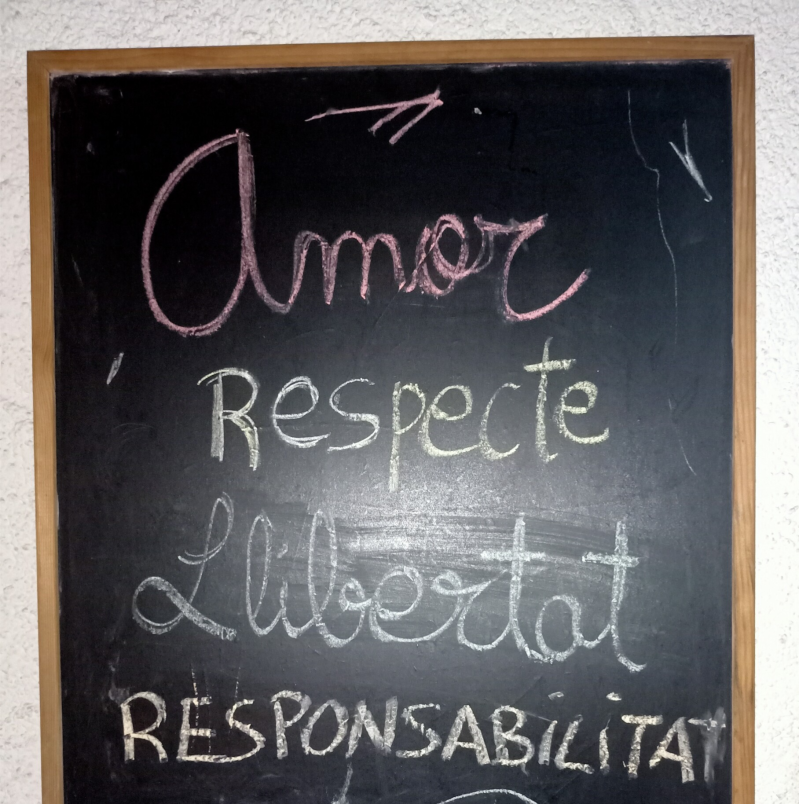 Amor
Respecte
Llibertat
RESPONSABiLiTAT